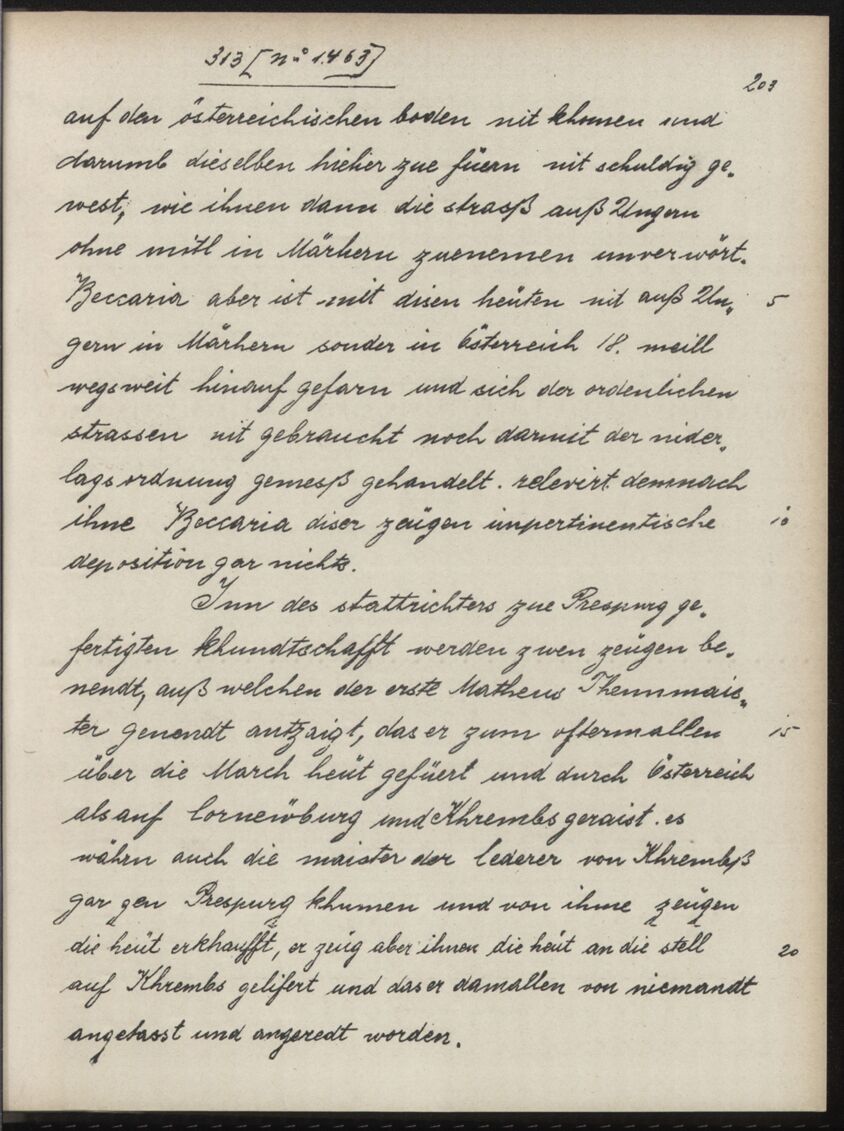 313 [n.º 1.463]
203
auf den österreichischen boden nit khomen und
darumb dieselben hieher zue füern nit schuldig ge„
west, wie ihnen dann die strasß auß Ungern
ohne mitl in Märhern zuenemen unverwört.
Beccaria aber ist mit disen heüten nit auß Un„ 5
gern in Märhern sonder in Österreich 18. meill
wegs weit hinauf gefarn und sich der ordenlichen
strassen nit gebraucht noch darmit der nider„
lags ordnung gemesß gehandelt. relevirt demnach
ihne Beccaria diser zeügen impertinentische 10
deposition gar nichts.
Inn des stattrichters zue Prespurg ge„
fertigten khundtschafft werden zwen zeügen be„
nendt, auß welchen der erste Matheus Thennmais„
ter genendt antzaigt, das er zum oftermallen 15
über die March heüt gefüert und durch Österreich
als auf Cornewburg und Khrembs geraist. es
währn auch die maister der lederer von Khrembß
gar gen Prespurg khumen und von ihme zeügen
die heüt erkhaufft, er zeüg aber ihnen die heüt an die stell 20
auf Khrembs gelifert und das er damallen von niemandt
angefasst und angeredt worden.